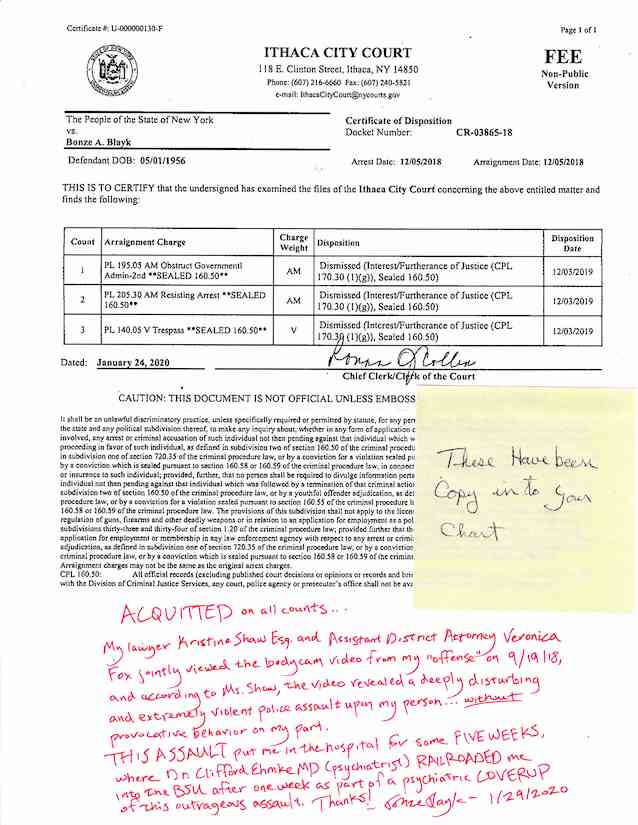 Certificate #: U-000000130-F
Page 1 of 1
ITHACA CITY COURT
118 E. Clinton Street, Ithaca, NY 14850
Phone: (607) 216-6660 Fax: (607) 240-5821
e-mail: IthacaCityCourt@nycourts.gov
FEE
Non-Public
Version
The People of the State of New York
vs.
Bonze A. Blayk
Certificate of Disposition
Docket Number: CR-03865-18
Defendant DOB: 05/01/1956
Arrest Date: 12/05/2018 Arraignment Date: 12/05/2018
THIS IS TO CERTIFY that the undersigned has examined the files of the Ithaca City Court concerning the above entitled matter and
finds the following:
Count Arraignment Charge Charge Weight Disposition Disposition Date
1 PL 195.05 AM Obstruct Governmentl Admin-2nd **SEALED 160.50** AM Dismissed (Interest/Furtherance of Justice (CPL 170.30 (1)(g)), Sealed 160.50) 12/03/2019
2 PL 205.30 AM Resisting Arrest **SEALED 160.50** AM Dismissed (Interest/Furtherance of Justice (CPL 170.30 (1)(g)), Sealed 160.50) 12/03/2019
3 PL 140.05 V Trespass **SEALED 160.50** V Dismissed (Interest/Furtherance of Justice (CPL 170.30 (1)(g)), Sealed 160.50) 12/03/2019
Dated: January 24, 2020
Chief Clerk/Clerk of the Court
CAUTION: THIS DOCUMENT IS NOT OFFICIAL UNLESS EMBOSS
It shall be an unlawful discriminatory practice, unless specifically required or permitted by statute, for any per
the state and any political subdivision thereof, to make any inquiry about, whether in any form of application o
involved, any arrest or criminal accusation of such individual not then pending against that individual which w
proceeding in favor of such individual, as defined in subdivision two of section 160.50 of the criminal procedu
in subdivision one of section 720.35 of the criminal procedure law, or by a conviction for a violation sealed pu
by a conviction which is sealed pursuant to section 160.58 or 160.59 of the criminal procedure law, in connec
or insurence to such individual; provided, further, that no person shall be required to divulge information perta
individual not then pending against that individual which was followed by a termination of that criminal actio
subdivision two of section 160.50 of the criminal procedure law, or by a youthful offender adjudication, as de
procedure law, or by a conviction for a violation sealed pursuant to section 160.55 of the criminal procedure l
160.58 or 160.59 of the criminal procedure law. The provisions of this subdivision shall not apply to the licen
regulation of guns, firearms and other deadly weapons or in relation to an application for employment as a pol
subdivisions thirty-three and thirty-four of section 1.20 of the criminal procedure law; provided further that th
application for employment or membership in any law enforcement agency with respect to any arrest or crimi
adjudication, as defined in subdivision one of section 720.35 of the criminal procedure law, or by a conviction
criminal procedure law, or by a conviction which is sealed pursuant to section 160.58 or 160.59 of the crimina
Arraignment charges may not be the same as the original arrest charges.
CPL 160.50: All official records (excluding published court decisions or opinions or records and brie
with the Division of Criminal Justice Services, any court, police agency or prosecutor's office shall not be ava
These Have been
Copy in to your
Chart
ACQUITTED on all counts...
My lawyer Kristine Shaw Esq. and Assistant District Attorney Veronica
Fox jointly viewed the bodycam video from my "offense" on 9/19/18,
and according to Ms. Shaw, the video revealed a deeply disturbing
and extremely violent police assault upon my person... without
provocative behavior on my part.
THIS ASSAULT put me in the hospital for some FIVE WEEKS,
where Dr. Clifford Ehmke MD (psychiatrist) RAILROADED me
into the BSU after one week as part of a psychiatric COVERUP
of this outrageous assault. Thanks! 1/29/2020